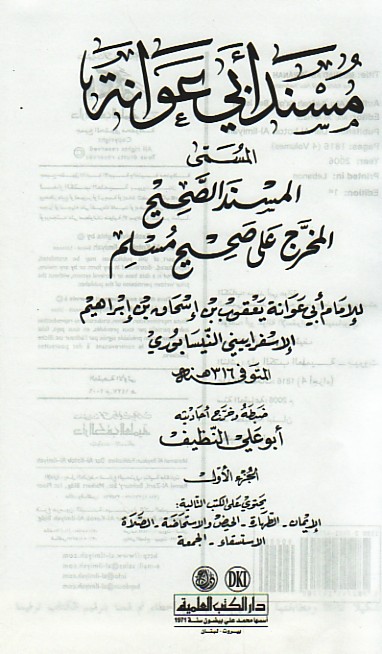 مُسْنَد أَبِي عَوَانَة
المُسَمَّى
المُسْنَد الصَّحِيح
المُخَرَّج عَلَى صَحِيح مُسْلِم
للإمام أبي عوانة يعقوب بن إسحاق بن إبراهيم
الإسفراييني النيسابوري
المتوفى ٣١٦ هـ
ضبطه وخرج أحاديثه
أبو علي النظيف
الجزء الأول
يحتوي على الكتب التالية:
الإيمان - الطهارة - الحيض والاستحاضة - الصلاة
الاستسقاء - الجمعة
DKi
دار الكتب العلمية
أسسها محمد علي بيضون سنة 1971
بيروت - لبنان